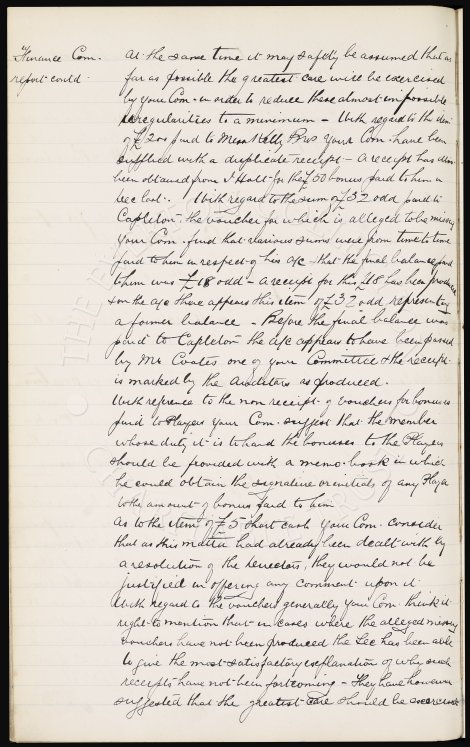 Finance Com.
report contd.
At the same time it may safely be assumed that as
far as possible the greatest care will be exercised
by your Com. in order to reduce these almost impossible
irregularities to a minimum — With regard to the item
of £200 paid to Messrs Kelly Bros your Com. have been
supplied with a duplicate receipt — A receipt has also
been obtained from J Holt for the £50 bonus paid to him in
Dec last. With regard to the sum of £32 odd paid to
Capleton the voucher for which is alleged to be missing
your Com. find that various sums were from time to time
paid to him in respect of his a/c — that the final balance paid
him was £18 odd — a receipt for this £18 has been produced
& on the a/c there appears this item of £32 odd representing
a former balance — Before the final balance was
paid to Capleton the a/c appears to have been passed
by Mr Coates one of your Committee & the receipt
is marked by the Auditors as produced.
With reference to the non receipt of vouchers for bonuses
paid to Players your Com. suggest that the member
whose duty it is to hand the bonuses to the Players
should be provided with a memo. book in which
he could obtain the signature or initials of any Player
to the amount of bonus paid to him
As to the item of £5 short cash your Com. consider
that as this matter had already been dealt with by
a resolution of the Directors, they would not be
justified in offering any comment upon it
With regard to the vouchers generally your Com. think it
right to mention that in cases where the alleged missing
vouchers have not been produced the Sec has been able
to give the most satisfactory explanation of why such
receipts have not been forthcoming — They have however
suggested that the greatest care should be exercised